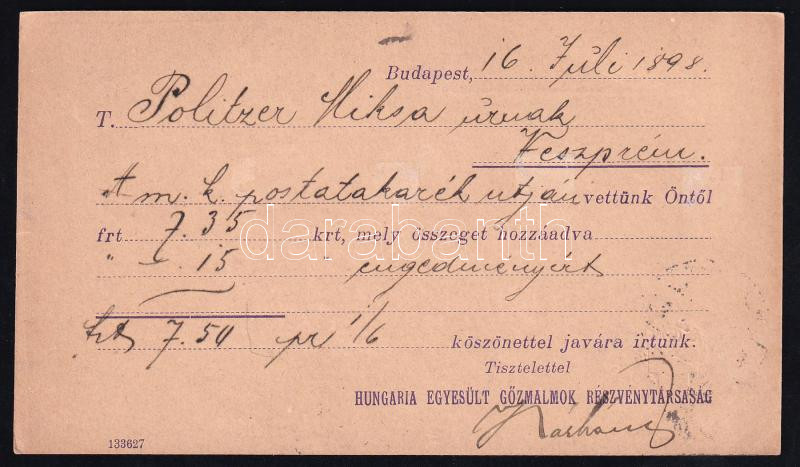 Budapest, 16. Juli 1898.
T. Politzer Miksa úrnak
Veszprém.
A m. k. postatakarék utján vettünk Öntől
frt 7.35 krt, mely összeget hozzáadva
" –.15 – engedményért
frt 7.50 pr 1/6 köszönettel javára irtunk.
Tisztelettel
HUNGARIA EGYESÜLT GŐZMALMOK RÉSZVÉNYTÁRSASÁG
133627
darabanth